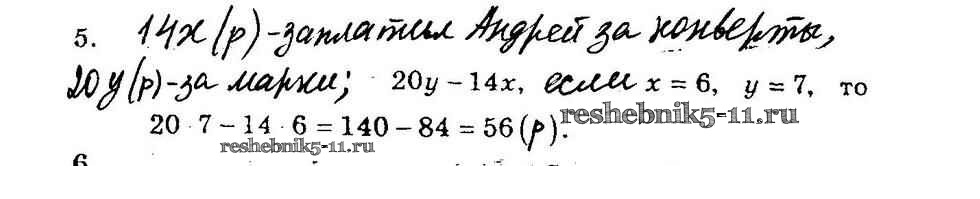 5. 14х(р)-заплатил Андрей за конверты,
20у(р)-за марки; 20y – 14x, если x = 6, y = 7, то
reshebnik5-11.ru
20 · 7 – 14 · 6 = 140 – 84 = 56(р).
reshebnik5-11.ru
6